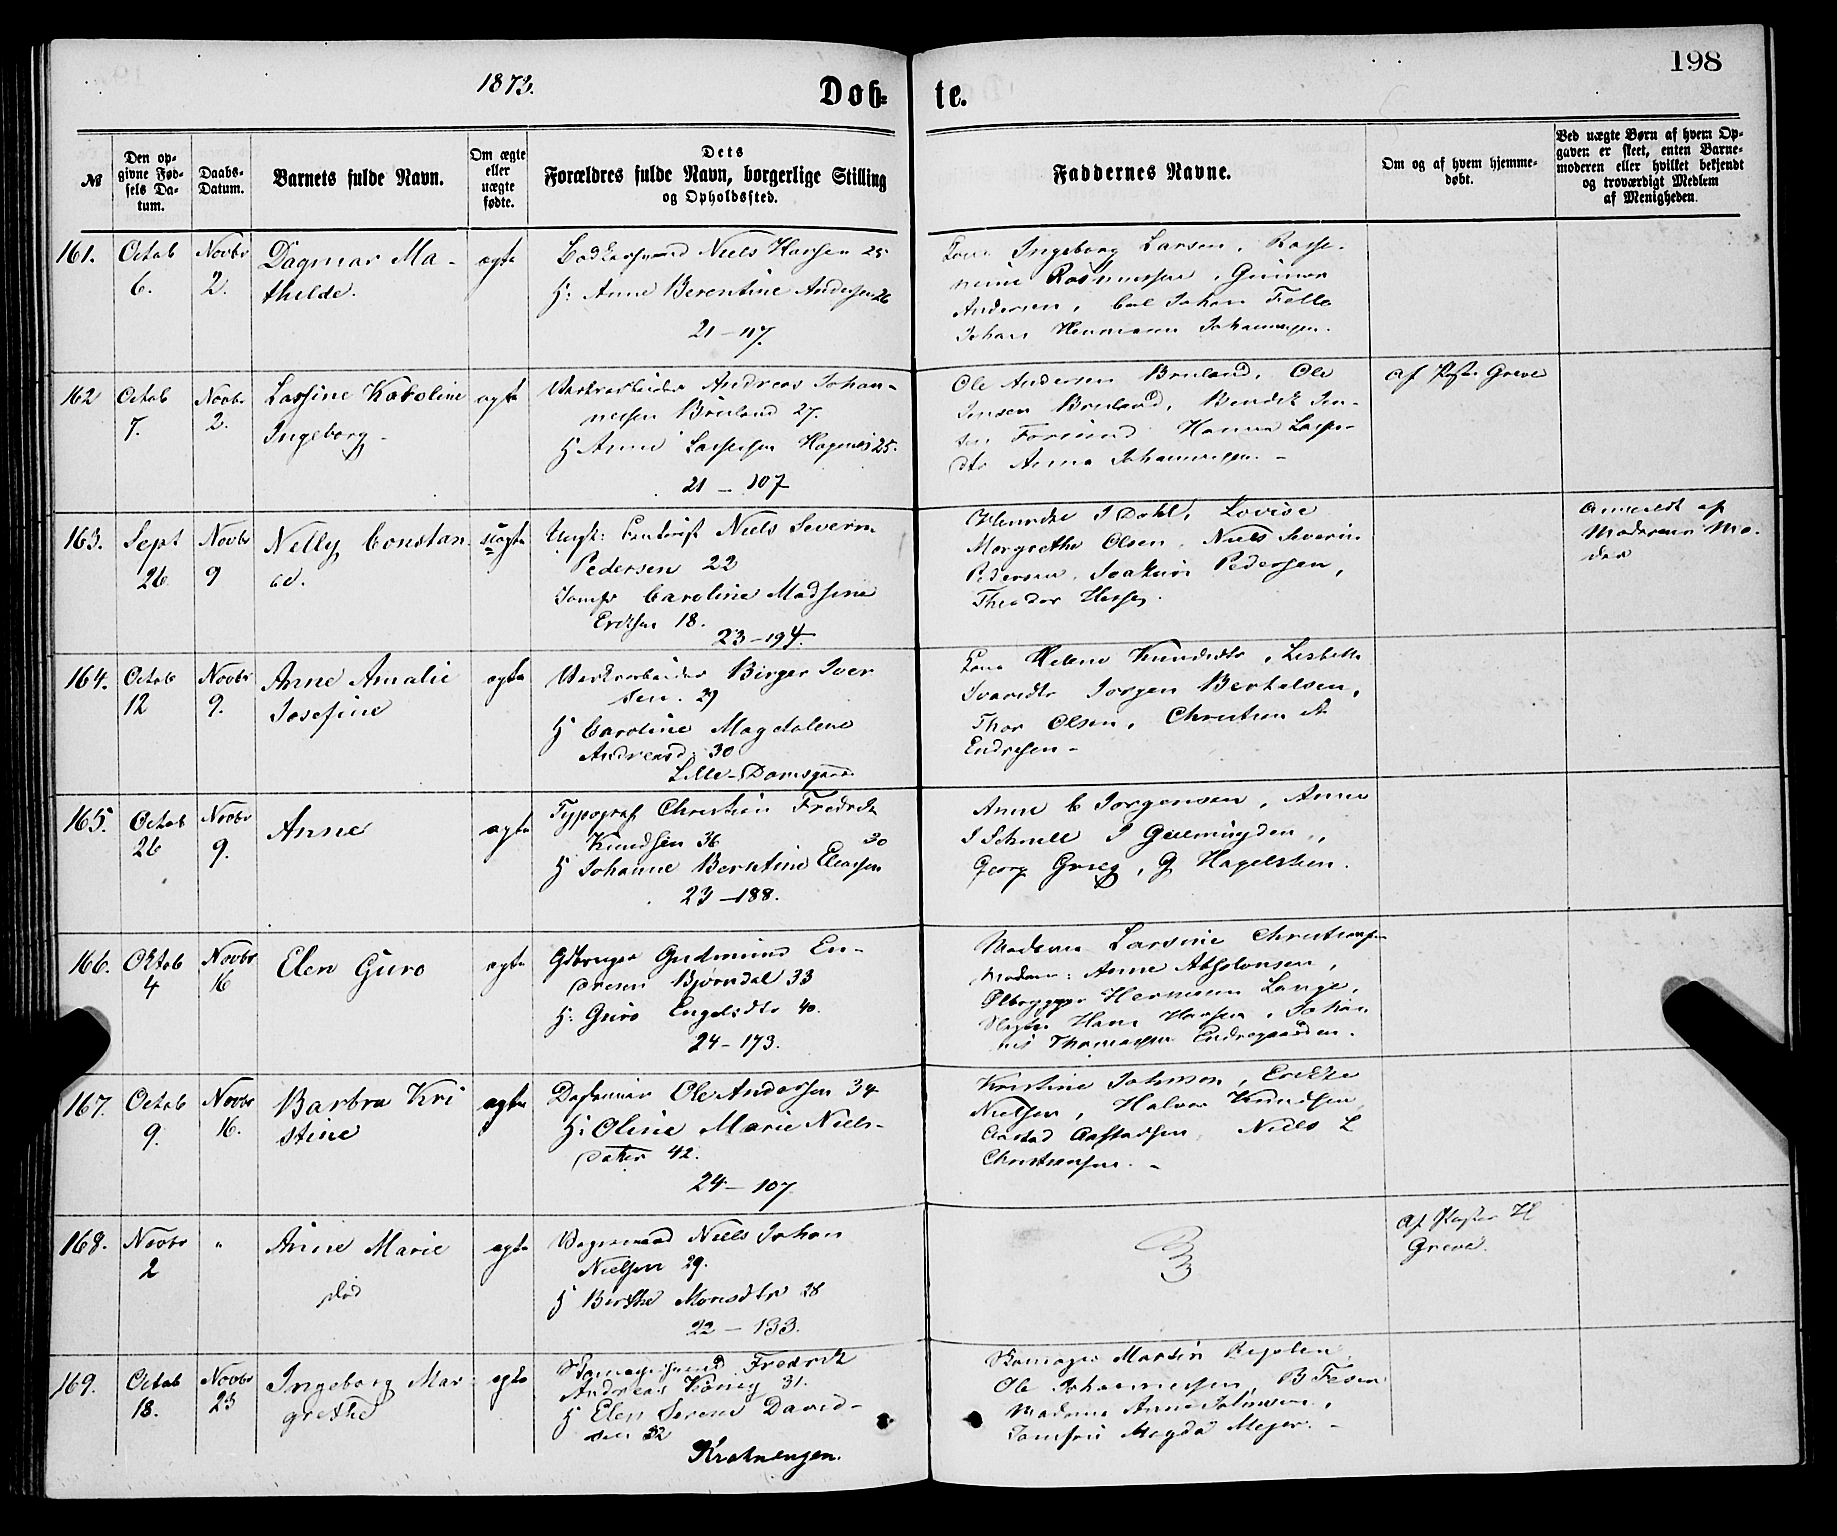 198
1873.
Døb=
te.
№
Den op-
givne Fød-
sels Da-
tum.
Daabs-
Datum.
Barnets fulde Navn.
Om ægte
eller
uægte
fødte.
Dets
Forældres fulde Navn, borgerlige Stilling
og Opholdssted.
Faddernes Navne.
Om og af hvem hjemme-
døbt.
Ved uægte Børn af hvem Op-
gaven er skeet, enten Barne-
moderen eller hvilket bekjendt
og troværdigt Medlem
af Menigheden.
161.
Octob
6.
Novbr
2.
Dagmar Ma-
thilde.
ægte
Niels Hansen 25
H: Anne Berentine Andersen 26
21 - 117.
Ingeborg Larsen,
Rasmussen, Gunner
Andersen, Carl Johan Falk
Johan Hermann Johannesen.
162
Octob
7.
Novbr
2.
Lassine Karoline
Ingeborg -
ægte
Værkarbeider Andreas Johan-
nesen Bruland 27.
H Anne Lassesen Hagenes 25.
21 - 107
Ole Andersen Bruland, Ole
Jensen Bruland, Bendik Jen-
sen Hanna Lasse-
dtr Anna Johannesen -
Af Greve
163.
Sept
26
Novbr
9
Nelly Constan
ce.
uægte
Ungk: Niels Severin
Pedersen 22
Jomfr Caroline Madsine
Eriksen 18.
23 - 194.
J Dahl, Lovise
Margrethe Olsen, Niels Severin
Pedersen, Joakim Pedersen,
Theodor
Anmeldt af
Moderens Mo-
der
164.
Octob
12
Novbr
9.
Anne Amalie
Josefine
ægte
Værkarbeider Birger Iver
sen. 29
H Caroline Magdalene
Andreasd: 30
Lille-Damsgaard
Helene Knudsdtr, Lisbeth
Jørgen Berthelsen,
Thor Olsen, Christian A
Endresen -
165.
Octob
26
Novbr
9.
Anne
ægte
Typograf Christian Fredrik
Knudsen 36
30
H Johanne Berntine Eliassen
23 - 188.
Anne C Jørgensen, Anne
J
Georg Grieg, G Hagelsteen.
166.
Oktob
4
Novbr
16
Elen Guro
ægte
Gudmund En-
dresen Bjørndal 33
H: Guro Engelsdtr 40.
24 - 173.
Madame Larsine
Madam: Anne Absolonsen,
Ølbrygger Hermann Lange,
Hans Hansen, Johan
nes Thomassen
167.
Octob
9.
Novbr
16.
Barbra Kri
stine
ægte
Ole Andersen 34
H: Oline Marie Niels-
datter 42.
24 - 107
Kristine Johnson,
Nielsen, Halvor Knudsen,
Aastad Aastadsen, Niels L
Christensen. -
168.
Novbr
2
"
Anne Marie
død
ægte
Niels Johan
Nielsen 29.
H Berthe Monsdtr 28
22 - 133.
Af H
Greve.
169.
Octob
18.
Novbr
23
Ingeborg Mar
grethe
ægte
Skomagersvend Fredrik
Andreas König 31.
H Elen Serene David-
sen 32
Skomager Martin
Ole Johannessen, B
Madame Anne Johnsen,
Jomfru Magda Meyer. -